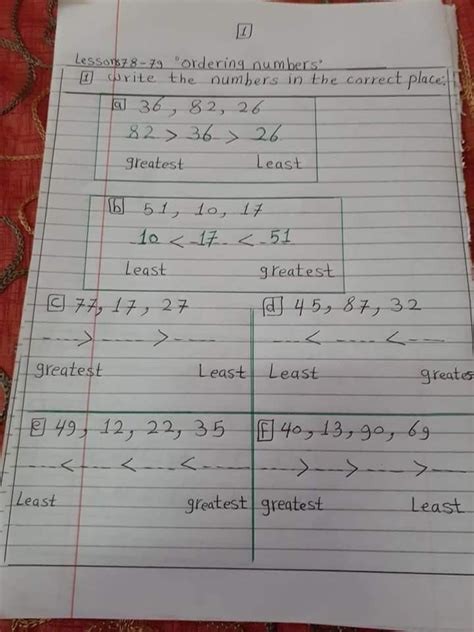 1
Lessons78-79 "ordering numbers"
1 write the numbers in the correct place:
a 36, 82, 26
82 > 36 > 26
greatest Least
b 51, 10, 17
10 < 17 < 51
Least greatest
c 77, 17, 27
---->----->-----
greatest Least
d 45, 87, 32
----<-----<----
Least greates
e 49, 12, 22, 35
----<----<----<----
Least greatest
f 40, 13, 90, 69
---->---->---->----
greatest Least